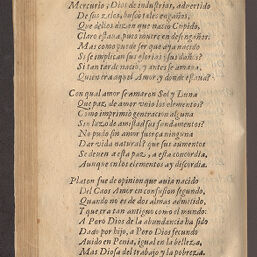 Mercurio, Dios de industrias, advertido
De sus zelos, buscò tales engaños,
Que dellos dizen que naciò Cupido,
Claro estava, pues muere en desengaños:
Mas como puede ser que aya nacido
Si se implican sus glorias, y sus daños?
Si tan tarde naciò, y antes se amava,
Quien era aquel Amor, y donde estava?
Con qual amor se amaron Sol y Luna
Que paz, de amor unio los elementos?
Como imprimio generacion alguna
Sin lazo de amistad sus fundamentos?
No pudo sin amor fuerça ninguna
Dar vida natural? que sus aumentos
Se deven a esta paz, a esta concordia,
Aunque en los elementos ay discordia.
Platon fue de opinion que avia nacido
Del Caos Amor en confusion segundo,
Quando no es de dos almas admitido,
Y que era tan antiguo como el mundo:
A Pero Dios de la abundancia ha sido
Dado por hijo, a Pero Dios fecundo
Avido en Penia, igual en la belleza,
Mas Diosa del trabajo y la pobreza.